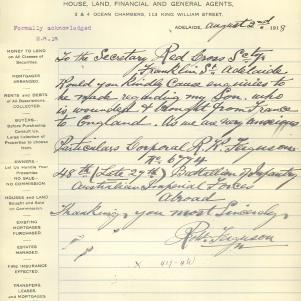 HOUSE, LAND, FINANCIAL AND GENERAL AGENTS,
3 & 4 OCEAN CHAMBERS, 113 KING WILLIAM STREET,
ADELAIDE, August 2nd 1918
Formally acknowledged
MONEY TO LEND
on All Classes of
Securities.
MORTGAGES
ARRANGED.
RENTS and DEBTS
of All Descriptions
COLLECTED.
BUYERS.
Before Purchasing
Consult Us.
Large Selection of
Properties to choose
from.
OWNERS.
Let Us Handle Your
Properties
NO SALE
NO COMMISSION.
HOUSES and LAND
Bought and Sold
on Commission
EXISTING
MORTGAGES
PURCHASED.
ESTATES
MANAGED.
FIRE INSURANCE
EFFECTED.
TRANSFERS,
LEASES,
and MORTGAGES
To the Secretary Red Cross Scty
Franklin St. Adelaide
Would you kindly cause enquiries to
be made regarding my Son who
is wounded & brought from France
to England. As we are very anxious
Particulars Corporal R. W. Ferguson
No 6774
48th (Late 27th) Battalion Infantry
Australian Imperial Forces
Abroad
Thanking you most Sincerely
Ferguson